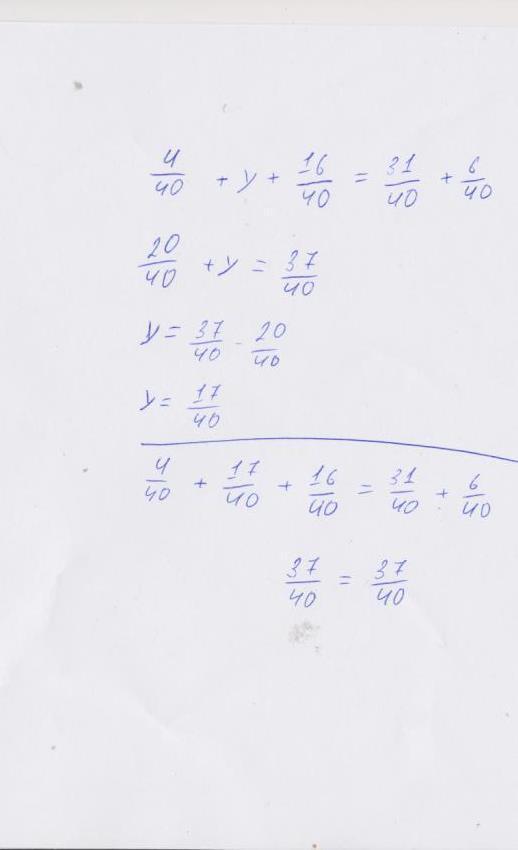 4/40 + y + 16/40 = 31/40 + 6/40
20/40 + y = 37/40
y = 37/40 - 20/40
y = 17/40
4/40 + 17/40 + 16/40 = 31/40 + 6/40
37/40 = 37/40